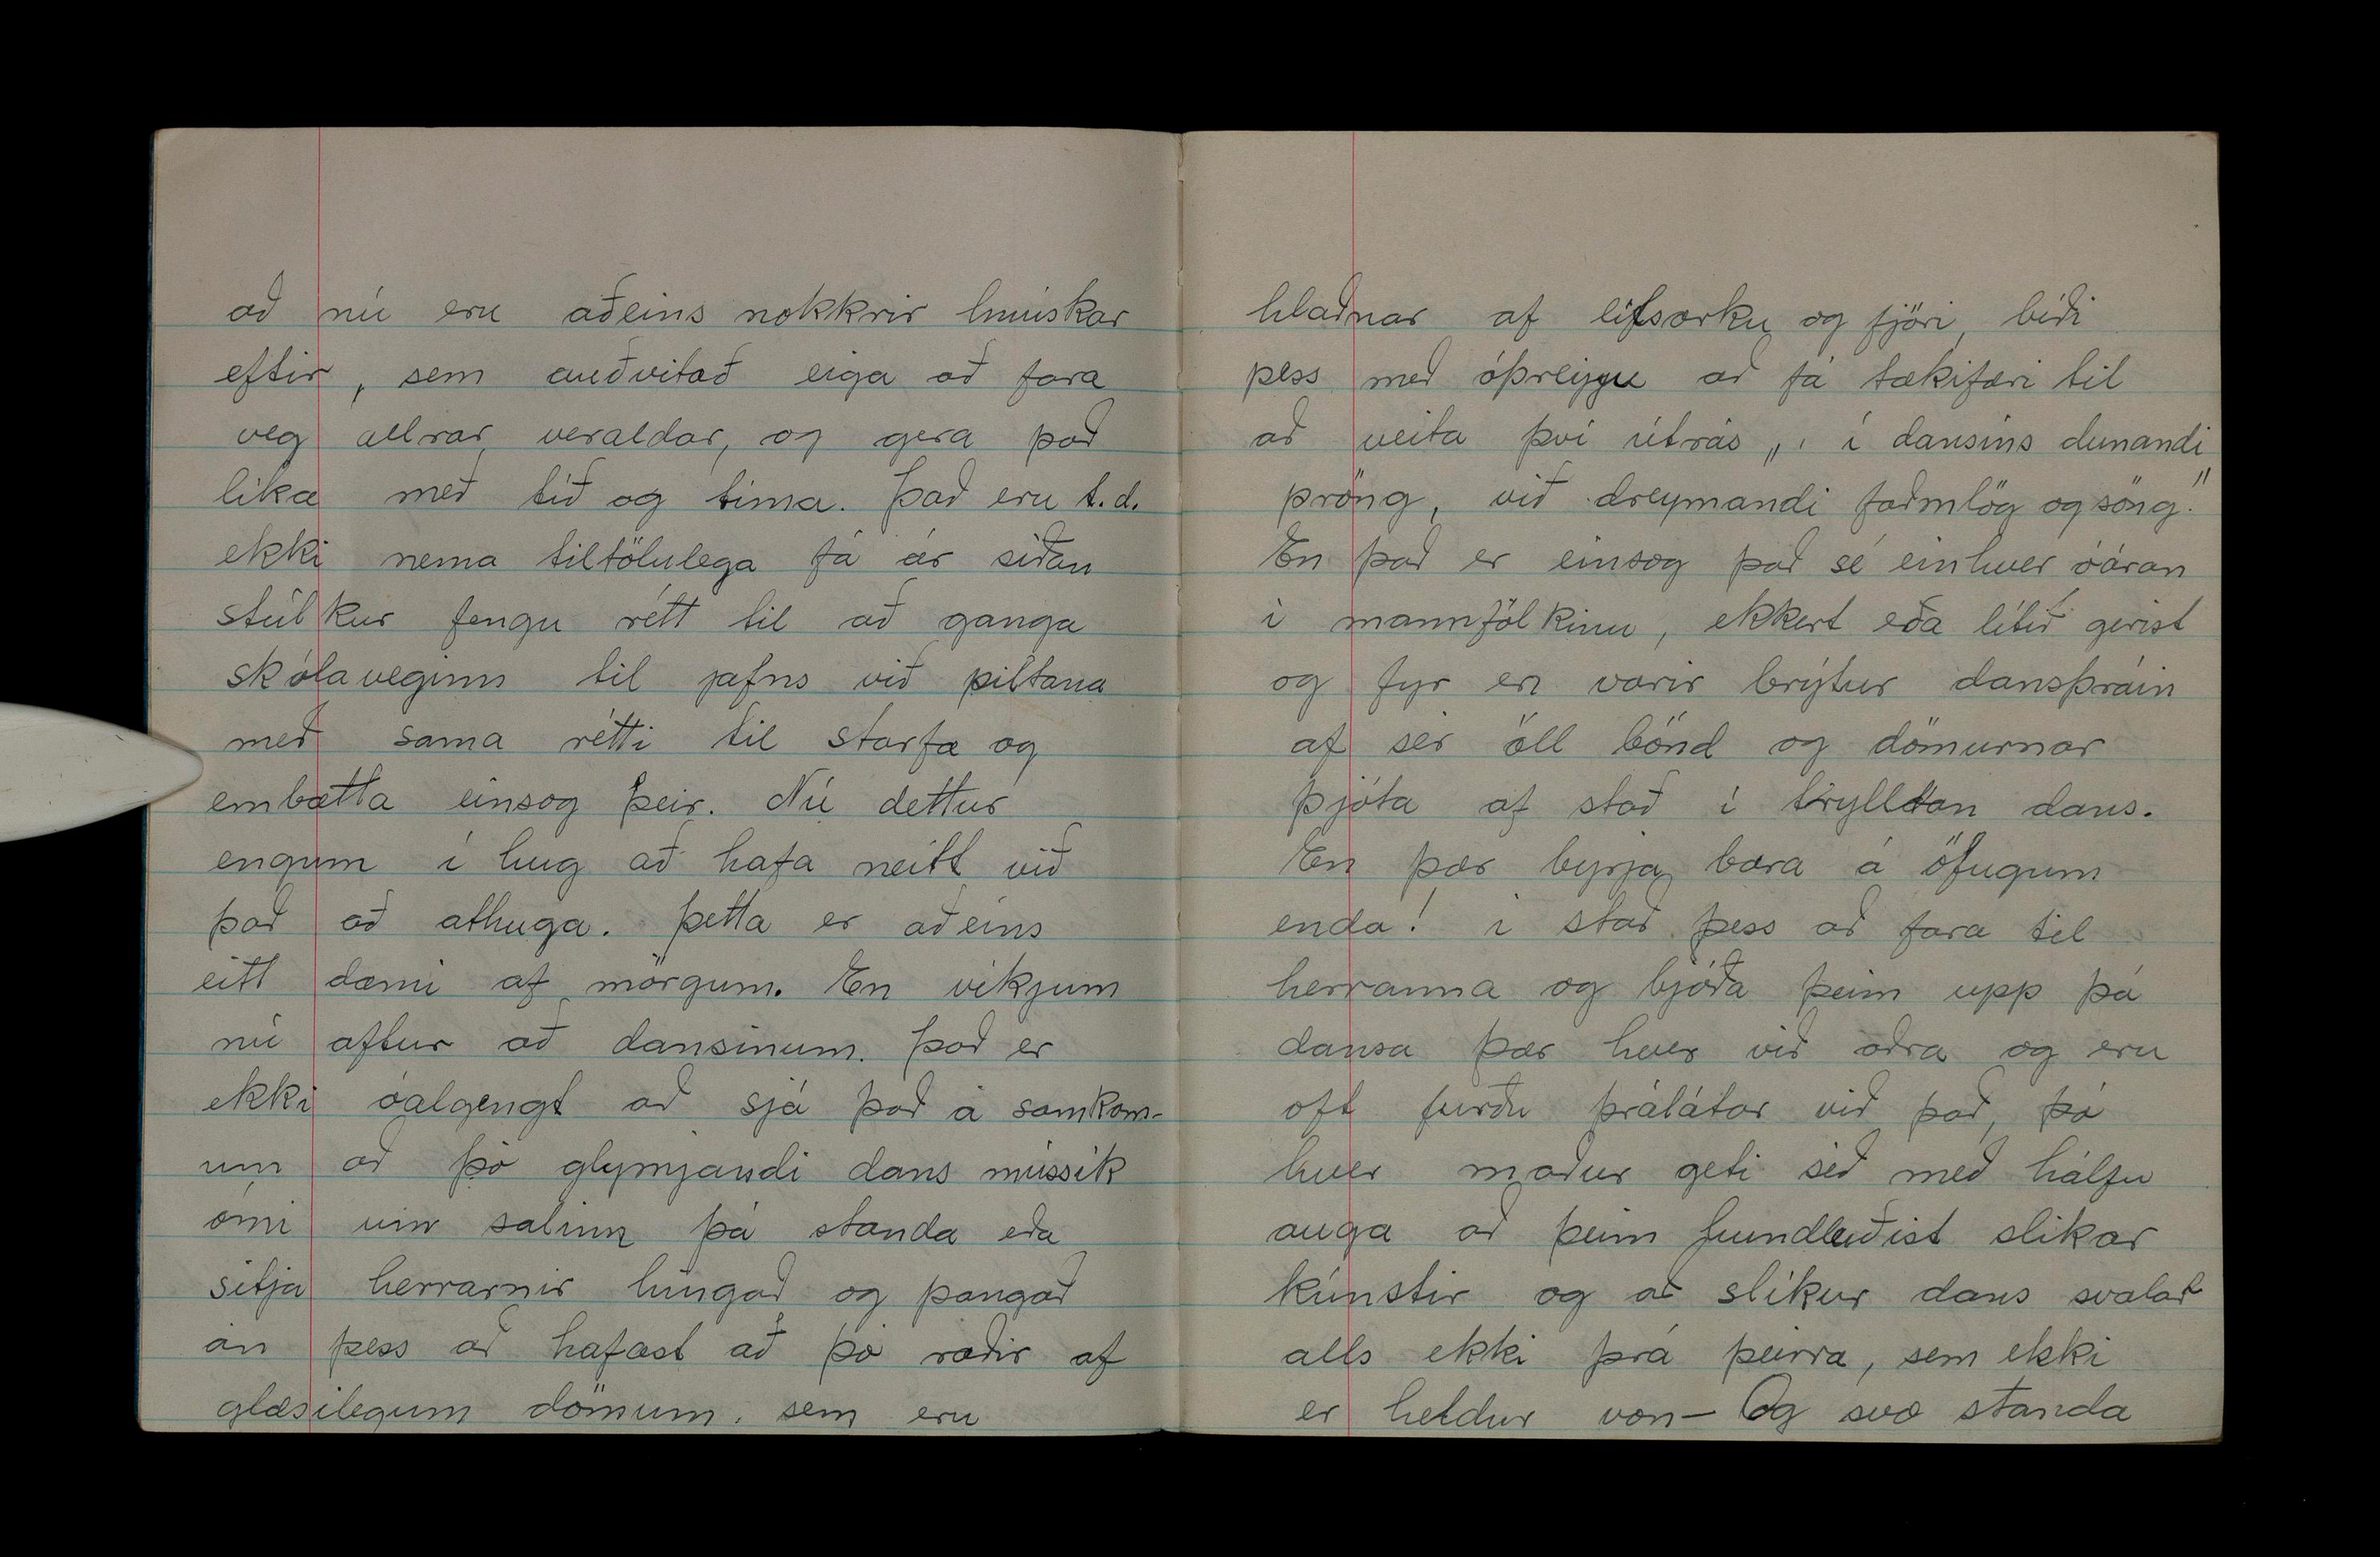 að nú eru aðeins nokkrir hnúskar
eftir, sem auðvitað eiga að fara
veg allrar veraldar, og gera það
líka með tíð og tíma. Það eru t.d.
ekki nema tiltölulega fá ár síðan
stúlkur fengu rétt til að ganga
skólaveginn til jafns við piltana
með sama rétti til starfa og
embætta einsog þeir. Nú dettur
engum í hug að hafa neitt við
það að athuga. Þetta er aðeins
eitt dæmi af mörgum. En víkjum
nú aftur að dansinum. Það er
ekki óalgengt að sjá það á samkom-
um að þó glymjandi dans mússik
ómi um salinn þá standa eða
sitja herrarnir hingað og þangað
án þess að hafast að þó raðir af
glæsilegum dömum, sem eru
hlaðnar af lífsorku og fjöri, bíði
þess með óþreyju að fá tækifæri til
að veita því útrás „ í dansins dunandi
þröng, við dreymandi faðmlög og söng."
En það er einsog það sé einhver óáran
í mannfólkinu, ekkert eða lítið gerist
og fyr en varir brýtur dansþráin
af sér öll bönd og dömurnar
þjóta af stað í trylltan dans.
En þær byrja bara á öfugum
enda! í stað þess að fara til
herranna og bjóða þeim upp þá
dansa þær hver við aðra og eru
oft furðu þrálátar við það, þó
hver maður geti séð með hálfu
auga að þeim hundleiðist slíkar
kúnstir og að slíkur dans svalar
alls ekki þrá þeirra, sem ekki
er heldur von – Og svo standa